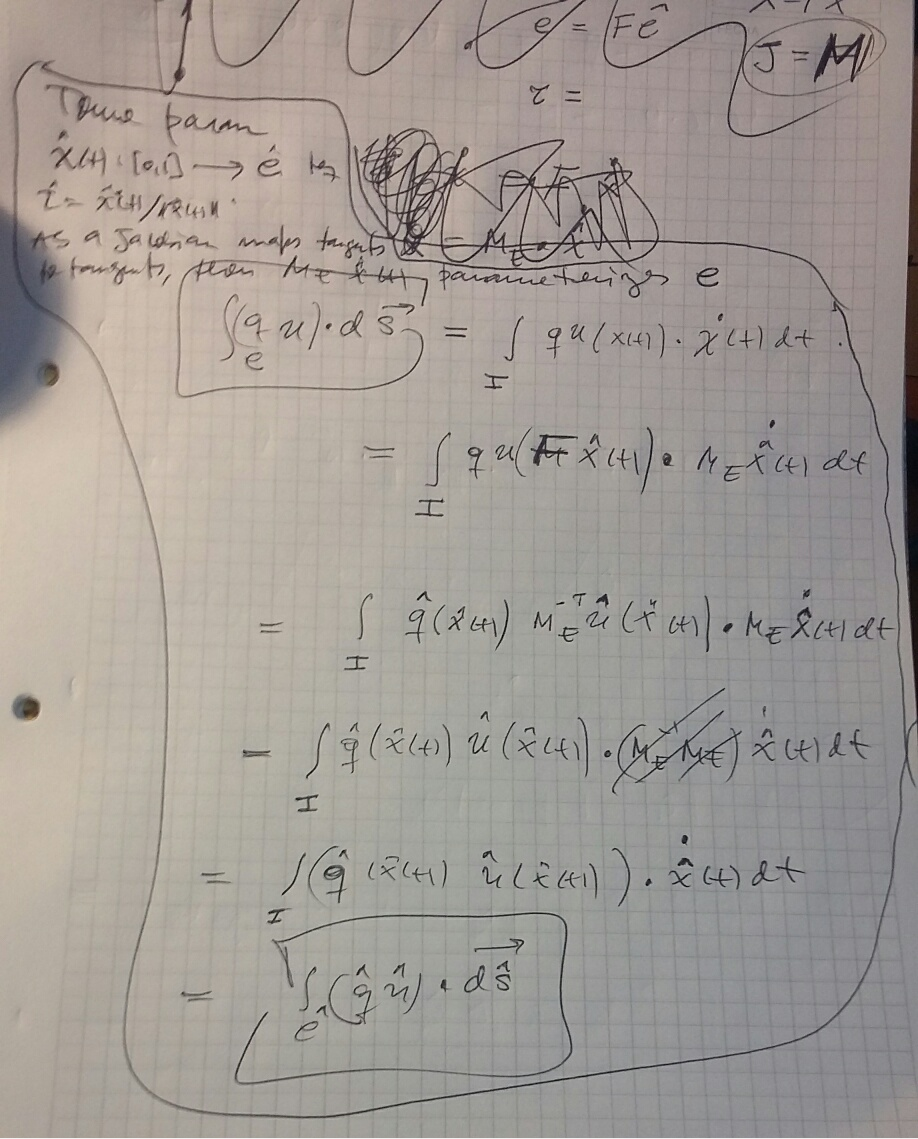 e = Fê
J = M
τ =
param
x̂(t) : [0,1] → ê
t̂ = x̂(t)/
As a Jacobian maps tangents = M_E
to tangents, then M_E x̂(t) parameterizes e
∫_e (q u) · d s⃗ = ∫_I q u(x(t)) · ẋ(t) dt .
= ∫_I q u(F x̂(t)) · M_E x̂̇(t) dt
= ∫_I q̂(x̂(t)) M_E^{-T} û(x̂(t)) · M_E x̂̇(t) dt
= ∫_I q̂(x̂(t)) û(x̂(t)) · (M_E^{-1} M_E) x̂̇(t) dt
= ∫_I (q̂(x̂(t)) û(x̂(t))) · x̂̇(t) dt
= ∫_ê (q̂ û) · d ŝ⃗